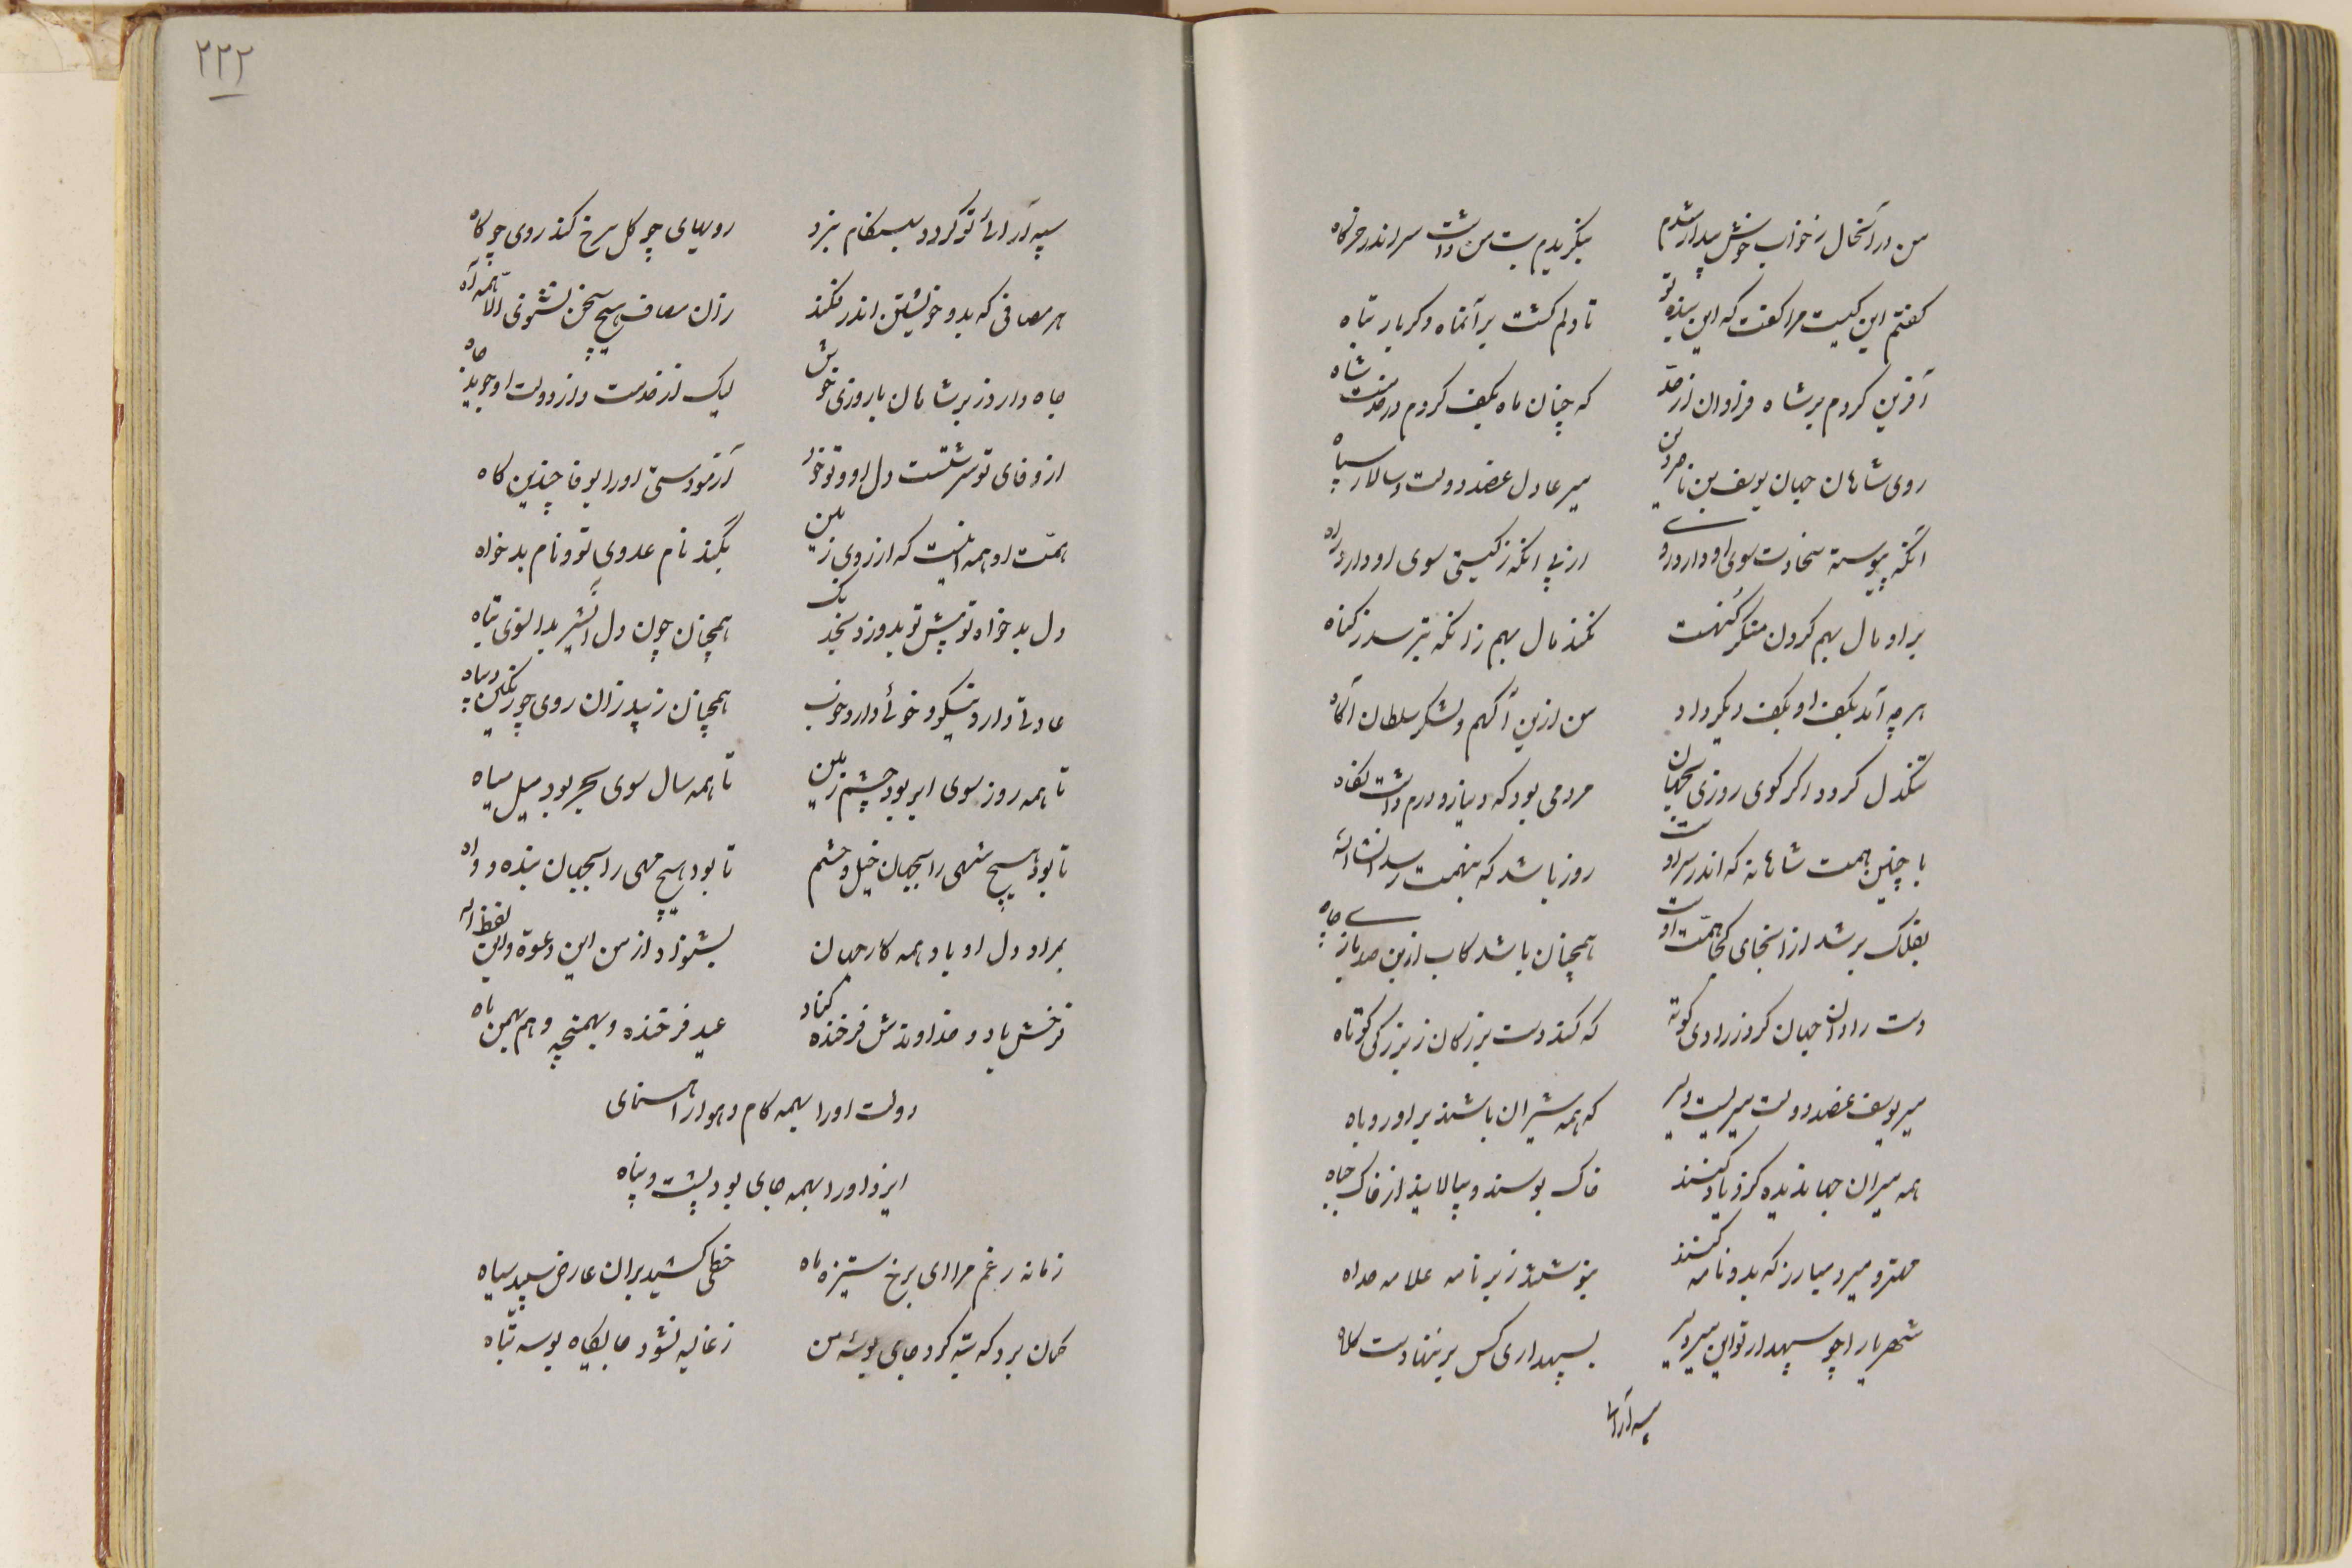 من در آنحال ز خواب خوش بیدار شدم بنگریدم بت من داشت سر اندر خرگاه
گفتم این کیست مرا گفت که این بنده تو تا دلم گشت بر آنماه دگر بار تباه
آفرین کردم بر شاه فراوان از حد که چنان ماه بکف کردم در خدمت شاه
روی شاهان جهان یوسف بن ناصر دین میر عادل عضد دولت و سالار سپاه
آنکه پیوسته سخاوت سوی او دارد روی از پی آنکه ز گیتی سوی او دارد راه
بر او مال بهم کردن منکر گنهست نکند مال بهم زانکه بترسد ز گناه
هر چه آمد بکف او بکف دیگر داد من ازین آگهم و لشکر سلطان آگاه
تنگدل گردد اگر گوی روزی بجهان مردمی بود که دینار و درم داشت نگاه
با چنین همت شاهانه که اندر سر اوست روز باشد که بنهمت رسد انشاالله
بفلک بر شد از انجای کجا همت اوست همچنان باشد کاب ازین صد بازی چاه
دست رادان جهان کرد ز رادی کوته که کند دست بزرگان ز بزرگی کوتاه
میر یوسف عضد دولت میریست دلیر که همه شیران باشند بر او روباه
همه میران جهاندیده کزو یاد کنند خاک بوسند و بیالایند از خاک جباه
مهتر و میر و مبارز که بدو نامه کنند بنویسند ز بر نامه علامه عبداه
شهریار را چو سپهدار تو این میر دلیر بسپهداری کس بر ننهادست کلاه
سپه آرای
۲۲۲
سپه آرائ تو گردد بهنگام نبرد رویهای چو گل سرخ کند روی چو کاه
هر مصافی که بدو خویشتن اندر فکند زان مصاف هیچ سخن نشنوی الا همه آه
جاه دارد ز بر شاهان با روزی خوش لیک از خدمت و از دولت او جوید جاه
از وفای تو سرشتست دل او و تو خود آزمودستی او را بوفا چندین گاه
همت او همه اینست که از روی زمین بکند نام عدوی تو و نام بدخواه
دل بدخواه تو پیش تو بدوزد بخدنگ همچنان چون دل آن شیر بدالوی تباه
عادتی دارد و نیکو خوئی دارد خوب همچنان زیبد زان روی چو رنگین دیباه
تا همه روز سوی ابر بود چشم زمین تا همه سال سوی بحر بود میل میاه
تا بود هیچ شهی را بجهان خیل و حشم تا بود هیچ مهی را بجهان بنده و داه
بمراد دل او باد همه کار جهان بشنواد از من این دعوة و این لفظ اله
ترخش باد و خداوندش فرخنده کناد عید فرخنده و بهمنجنه و هم بهمن ماه
دولت او را بهمه کام و هوا راهنمای
ایزد او را بهمه جای بود پشت و پناه
زمانه رغم مرا ای برخ ستیزه ماه خطی کشید بران عارض سپید سیاه
گمان برد که تبه کرد جای بوسه من ز غالیه نشود جایگاه بوسه تباه